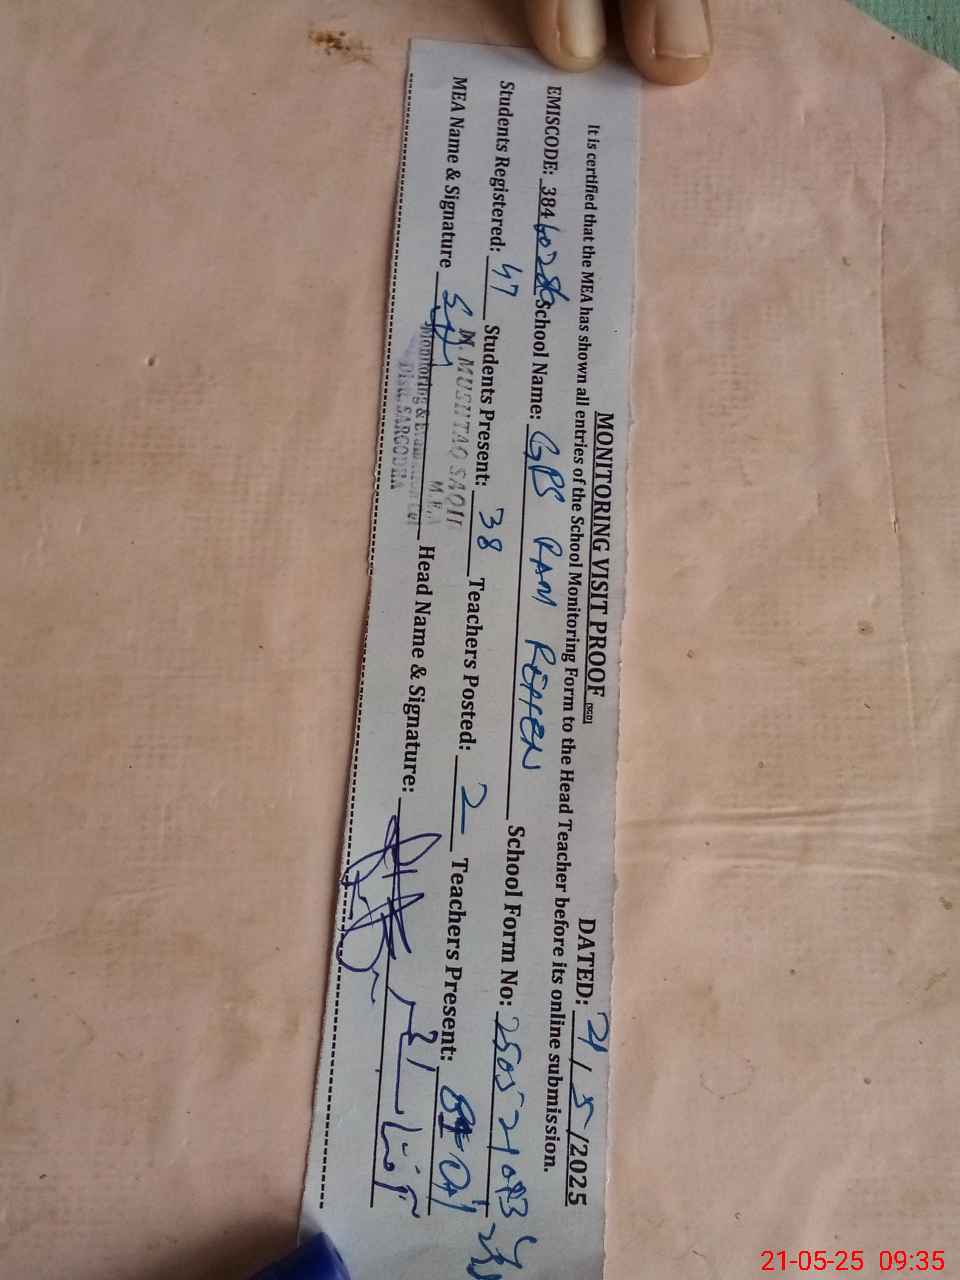 MONITORING VISIT PROOF [SGD] DATED: 21/5/2025
It is certified that the MEA has shown all entries of the School Monitoring Form to the Head Teacher before its online submission.
EMISCODE: 384 School Name: GPS RAM School Form No:
Students Registered: 47 Students Present: 38 Teachers Posted: 2 Teachers Present:
MEA Name & Signature Head Name & Signature:
M. MUSHTAQ SAQIB
M.E.A
Monitoring &
Distt. SARGODHA
21-05-25 09:35